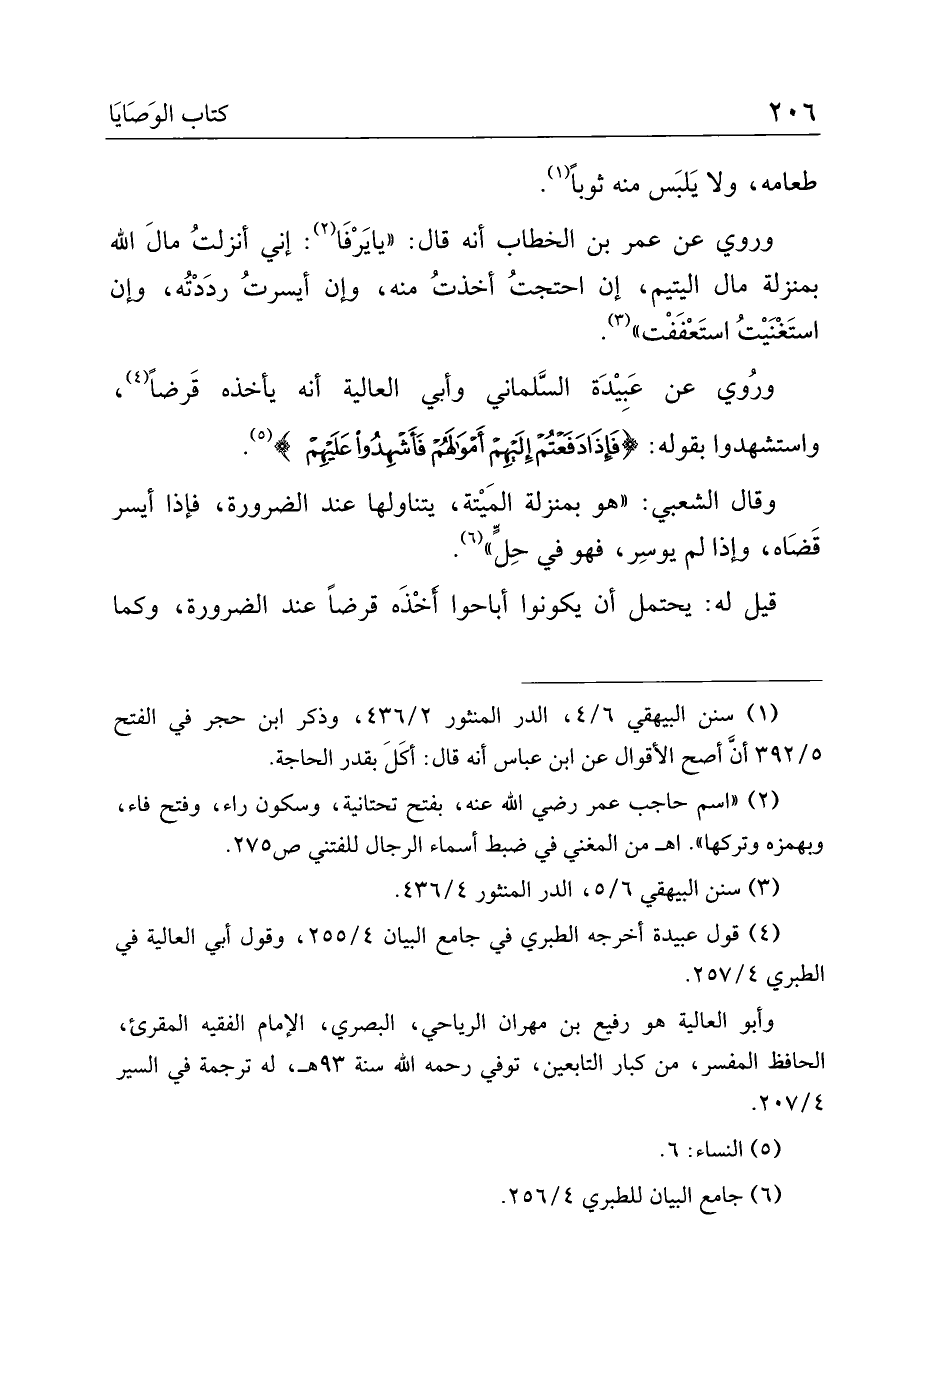 ٢٠٦ كتاب الوَصَايَا
طعامه، ولا يَلبَس منه ثوباً(١).
وروي عن عمر بن الخطاب أنه قال: «يايَرْفَا(٢): إني أنزلتُ مالَ الله
بمنزلة مال اليتيم، إن احتجتُ أخذتُ منه، وإن أيسرتُ ردَدْتُه، وإن
استَغْنَيْتُ استَعْفَفْت»(٣).
ورُوي عن عَبِيْدَة السَّلماني وأبي العالية أنه يأخذه قَرضاً(٤)،
واستشهدوا بقوله: ﴿فَإِذَا دَفَعْتُمْ إِلَيْهِمْ أَمْوَٰلَهُمْ فَأَشْهِدُوا۟ عَلَيْهِمْ﴾(٥).
وقال الشعبي: «هو بمنزلة المَيْتة، يتناولها عند الضرورة، فإذا أيسر
قَضَاه، وإذا لم يوسِر، فهو في حِلٍّ»(٦).
قيل له: يحتمل أن يكونوا أباحوا أَخْذَه قرضاً عند الضرورة، وكما
(١) سنن البيهقي ٤/٦، الدر المنثور ٤٣٦/٢، وذكر ابن حجر في الفتح
٣٩٢/٥ أنَّ أصح الأقوال عن ابن عباس أنه قال: أكَلَ بقدر الحاجة.
(٢) «اسم حاجب عمر رضي الله عنه، بفتح تحتانية، وسكون راء، وفتح فاء،
وبهمزه وتركها». اهـ من المغني في ضبط أسماء الرجال للفتني ص٢٧٥.
(٣) سنن البيهقي ٥/٦، الدر المنثور ٤٣٦/٤.
(٤) قول عبيدة أخرجه الطبري في جامع البيان ٢٥٥/٤، وقول أبي العالية في
الطبري ٢٥٧/٤.
وأبو العالية هو رفيع بن مهران الرياحي، البصري، الإمام الفقيه المقرئ،
الحافظ المفسر، من كبار التابعين، توفي رحمه الله سنة ٩٣هـ، له ترجمة في السير
٢٠٧/٤.
(٥) النساء: ٦.
(٦) جامع البيان للطبري ٢٥٦/٤.